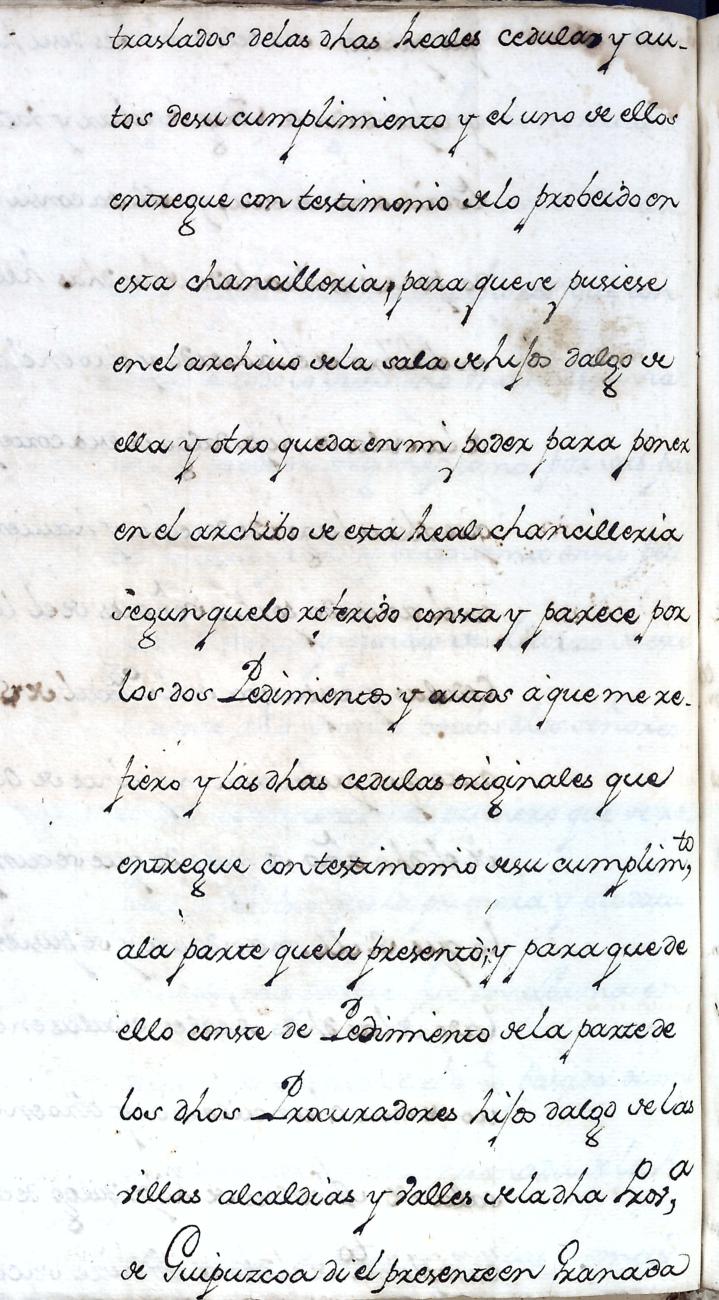 traslados delas dhas Reales cedulas y au-
tos desu cumplimiento y el uno de ellos
entregue con testimonio delo probeido en
esta chancilleria, para quese pusiese
en el archiuo dela sala de hijos dalgo de
ella y otro queda en mi poder para poner
en el archibo de esta Real chancilleria
segun quelo referido consta y parece por
los dos Pedimientos y autos a que me re-
fiero y las dhas cedulas originales que
entregue con testimonio desu cumplimto,
ala parte quela presentò; y para que de
ello conste de Pedimiento dela parte de
los dhos Procuradores hijos dalgo de las
villas alcaldias y valles dela dha Prova,
de Guipuzcoa di el presente en Granada